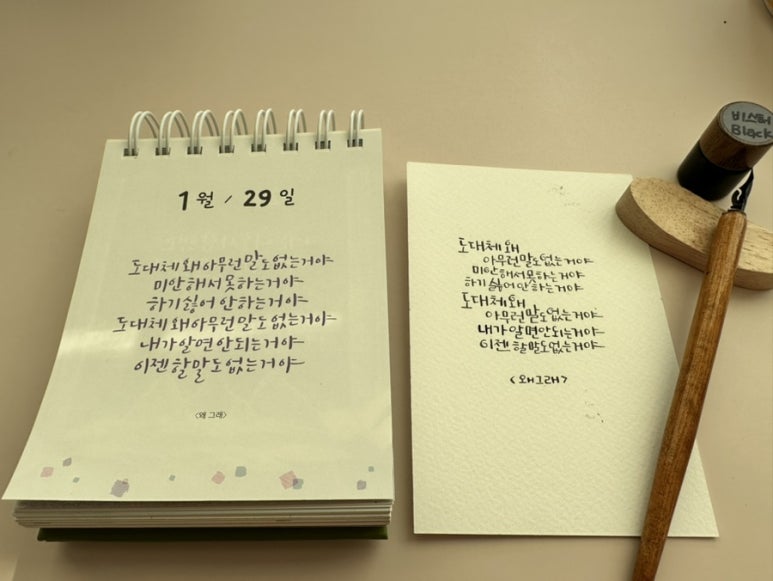 1월 / 29일
도대체 왜 아무런 말도 없는거야
미안해서 못하는거야
하기 싫어 안하는거야
도대체 왜 아무런 말도 없는거야
내가 알면 안되는거야
이젠 할말도 없는거야
<왜 그래>
도대체 왜
아무런 말도 없는거야
미안해서 못하는거야
하기 싫어 안하는거야
도대체 왜
아무런 말도 없는거야
내가 알면 안되는거야
이젠 할말도 없는거야
<왜그래>
비스터
Black